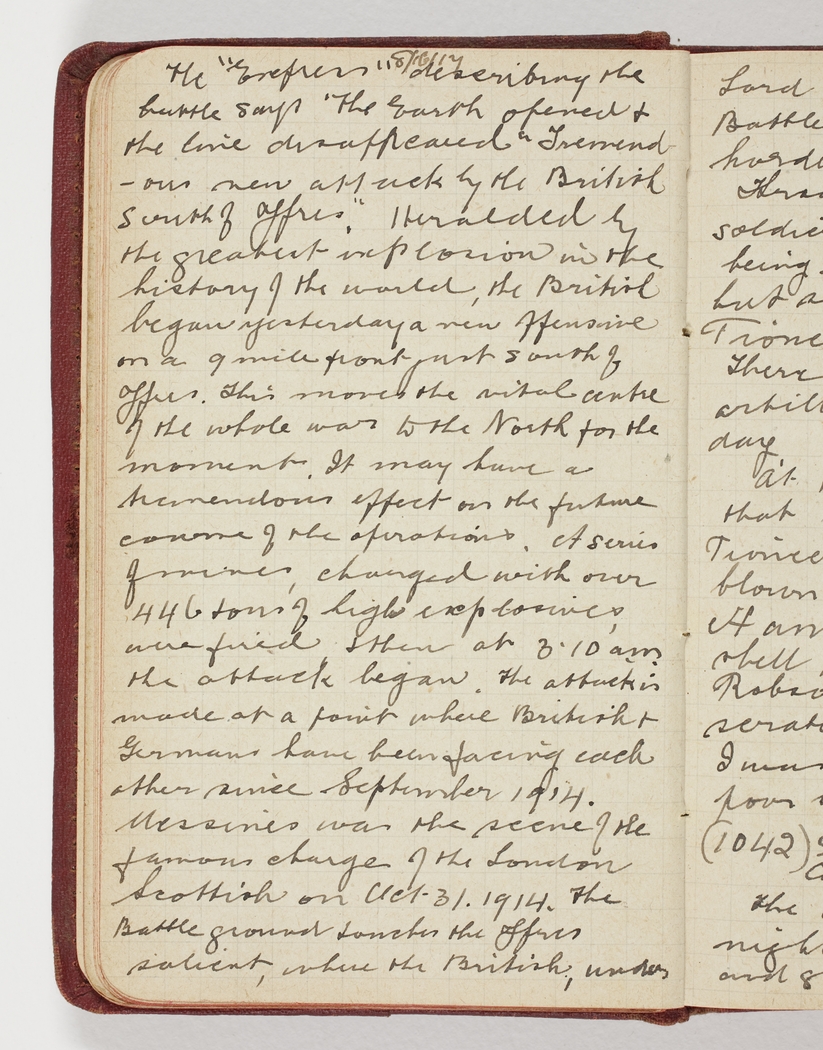 8/6/17
The "Express" describing the
battle says "The Earth opened &
the line disappeared" Tremend-
-ous new attack by the British
South of Ypres". Heralded by
the greatest explosion in the
history of the world, the British
began yesterday a new offensive
on a 9 mile front just south of
Ypres. This moves the vital centre
of the whole war to the North for the
moment. It may have a
tremendous effect on the future
course of the operations. A series
of mines, charged with over
446 tons of high explosives,
were fired, & then at 3.10 am
the attack began. The attack is
made at a point where British &
Germans have been facing each
other since September 1914.
Messines was the scene of the
famous charge of the London
Scottish on Oct 31. 1914. The
Battle ground touches the Ypres
salient, where the British, under
Lord
Battle
There
artill
day
At
that
blown
A
shell
I was
poor
(1042)
The
night
and 8
soldie
being
but